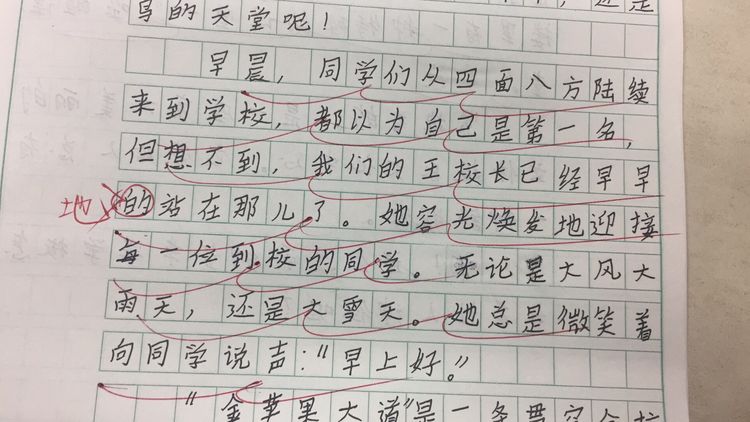 鸟的天堂呢！
早晨，同学们从四面八方陆续
来到学校，都以为自己是第一名，
但想不到，我们的王校长已经早早
地
的站在那儿了。她容光焕发地迎接
每一位到校的同学。无论是大风大
雨天，还是大雪天。她总是微笑着
向同学说声：“早上好。”
“金苹果大道”是一条贯穿全校